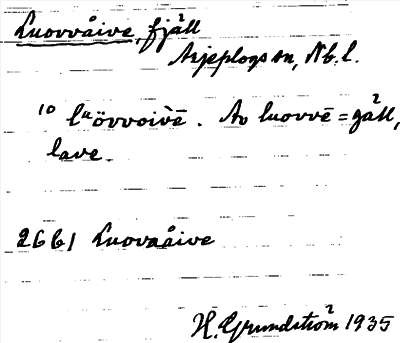 Luovvåive, fjäll
Arjeplogs sn, Nb. l.
10 lᵘövvoivē. Av luovvē = gäll,
lave.
2661 Luovaåive
H. Grundström 1935